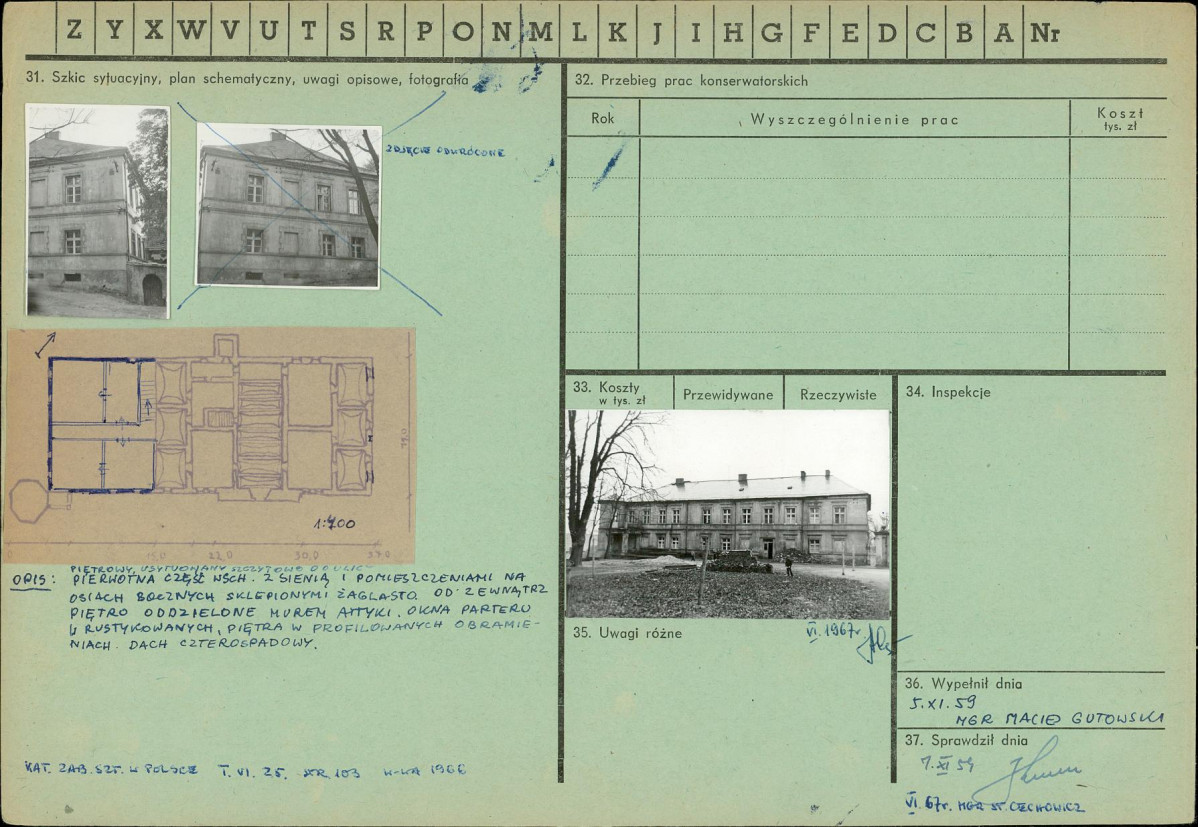 Z Y X W V U T S R P O N M L K J I H G F E D C B A Nr
31. Szkic sytuacyjny, plan schematyczny, uwagi opisowe, fotografia
ZDJĘCIE ODWRÓCONE
1:400
15,0 22,0 30,0
OPIS:
PIĘTROWY, USYTUOWANY SZCZYTOWO DO ULICY
PIERWOTNA CZĘŚĆ WSCH. Z SIENIĄ I POMIESZCZENIAMI NA
OSIACH BOCZNYCH SKLEPIONYMI ŻAGLASTO. OD ZEWNĄTRZ
PIĘTRO ODDZIELONE MUREM ATTYKI. OKNA PARTERU
W RUSTYKOWANYCH, PIĘTRA W PROFILOWANYCH OBRAMIE-
NIACH. DACH CZTEROSPADOWY.
KAT. ZAB. SZT. W POLSCE T. VI. Z5. STR 103 W-WA 1966
32. Przebieg prac konserwatorskich
Rok Wyszczególnienie prac Koszt
tys. zł
33. Koszty
w tys. zł
Przewidywane Rzeczywiste
34. Inspekcje
35. Uwagi różne
VI. 1967r
36. Wypełnił dnia
5.XI.59
MGR MACIEJ GUTOWSKI
37. Sprawdził dnia
7.XI 59
VI. 67r. MGR ST. CECHOWICZ